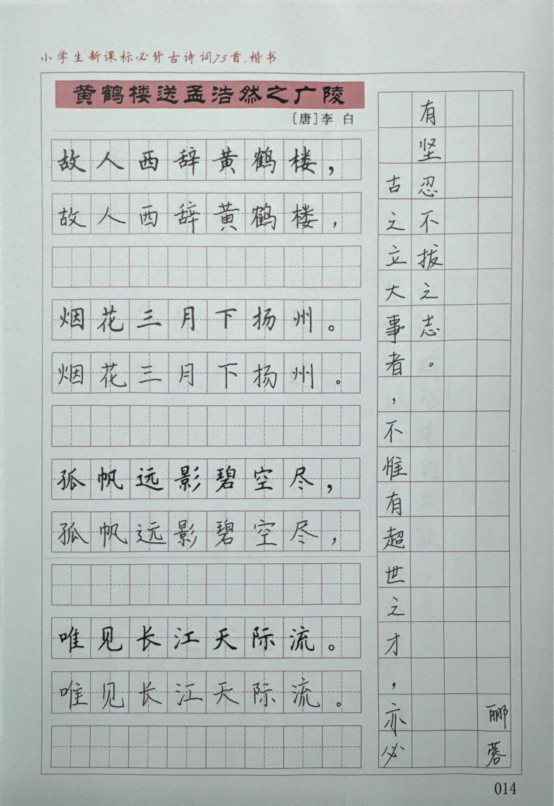 小学生新课标必背古诗词75首·楷书
黄鹤楼送孟浩然之广陵
[唐]李白
故人西辞黄鹤楼，
故人西辞黄鹤楼，
烟花三月下扬州。
烟花三月下扬州。
孤帆远影碧空尽，
孤帆远影碧空尽，
唯见长江天际流。
唯见长江天际流。
古之立大事者，不惟有超世之才，亦必
有坚忍不拔之志。
郦蓉
014